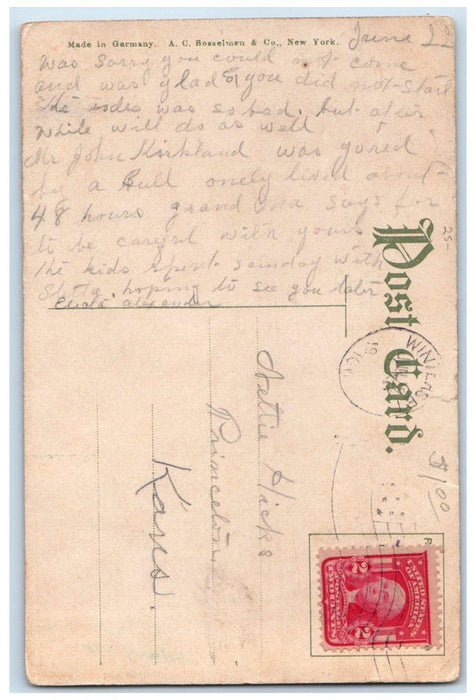 Made in Germany. A. C. Bosselman & Co., New York.
June 22
Was sorry you could not come
and was glad you did not start
the was so bad, but after
while will do as well
Mr John Kirkland was gored
by a Bull onely lived about
48 hours grand ma says for
to be careful with yours
the kids spent sunday with
hoping to see you later
alexander
Post Card.
25-
$1.00
Nettie Hicks
Princeton
Kans.
UNITED STATES
OF AMERICA
2 2